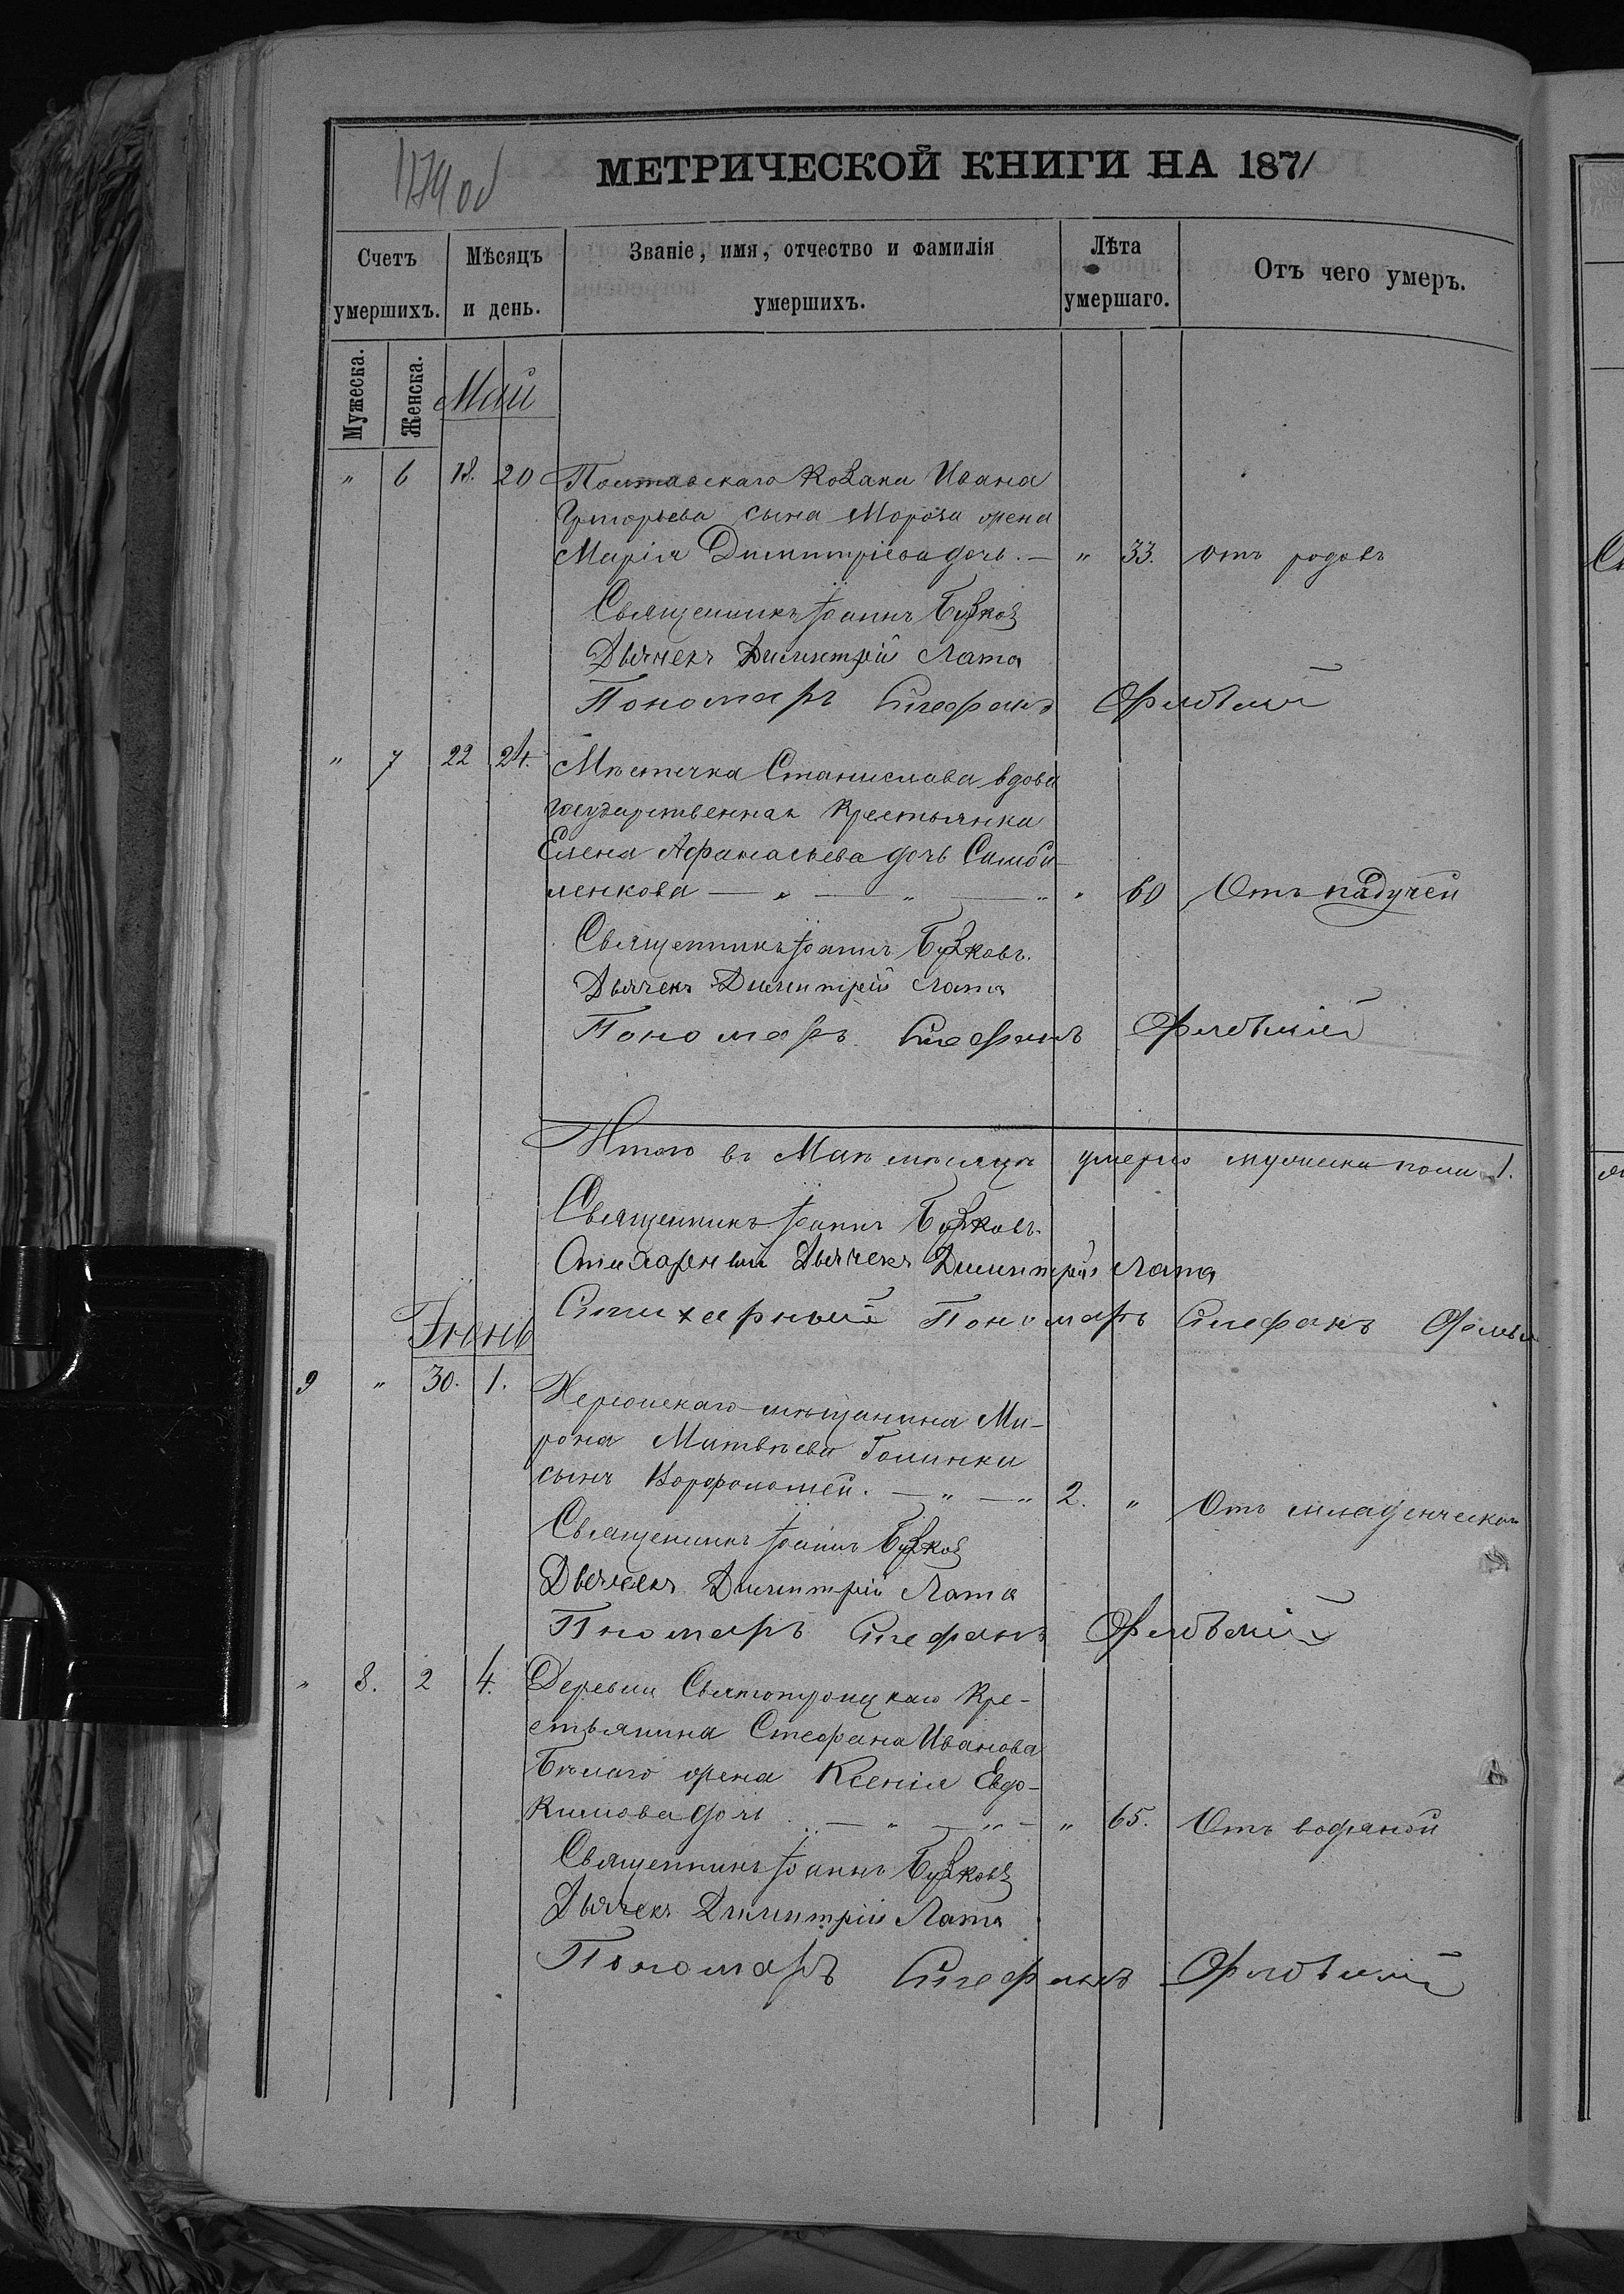 1179 об
МЕТРИЧЕСКОЙ КНИГИ НА 1871
Счетъ умершихъ.
Мѣсяцъ и день.
Званіе, имя, отчество и фамилія умершихъ.
Лѣта умершаго.
Отъ чего умеръ.
Мужеска.
Женска.
Май
" 6 18. 20 Полтавскаго Козака Ивана
Григорьева сына Мороза жена
Марія Димитріева дочь. — " 33. отъ родовъ
Священникъ Іоаннъ
Дьячекъ Димитрій Лата
Пономарь Стефанъ
" 7 22 24. Мѣстечка Станислава вдова
государственная крестьянка
Елена Афанасьева дочь
ленкова — " — " — " " 60 Отъ падучей
Священникъ Іоаннъ
Дьячекъ Димитрій Лата
Пономарь Стефанъ
Итого въ Маѣ мѣсяцѣ умерло мужеска пола 1.
Священникъ Іоаннъ
Стихарный Дьячекъ Димитрій Лата
Стихарный Пономарь Стефанъ
Іюнь
9 " 30. 1. Херсонскаго мѣщанина Ми-
рона Матвѣева Голинки
сынъ Ворфоломей. — " — " 2. " Отъ младенческой
Священникъ Іоаннъ
Дьячекъ Димитрій Лата
Пномарь Стефанъ
" 8. 2 4. Деревни Святотроицкаго Кре-
стьянина Стефана Иванова
Бѣлаго жена Ксенія Евдо-
кимова дочь — " — " — " 65. Отъ водяной
Священникъ Іоаннъ
Дьячекъ Димитрій Лата
Пономарь Стефанъ